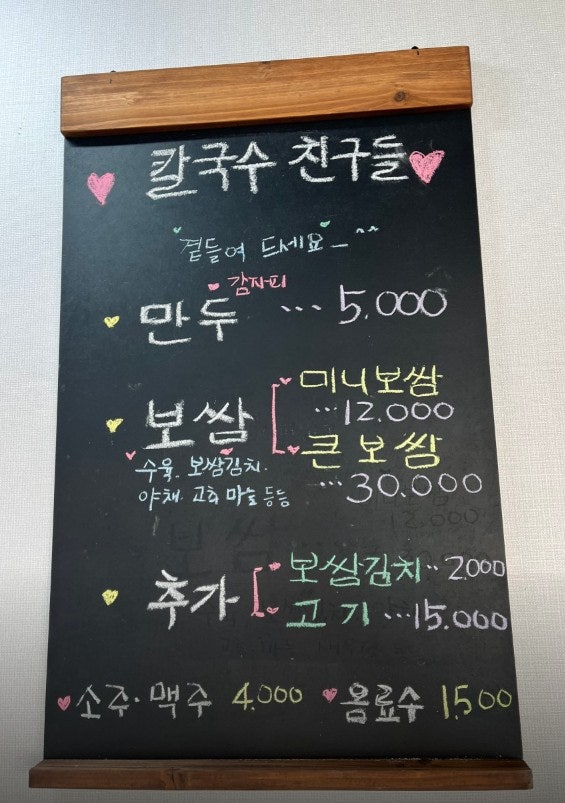 칼국수 친구들
곁들여 드세요_^^
감자피
만두 ... 5.000
보쌈
미니보쌈
...12.000
큰보쌈
...30.000
수육. 보쌈김치.
야채. 고추 마늘 등등
추가
보쌈김치..2.000
고기...15.000
소주·맥주 4.000 음료수 1.500